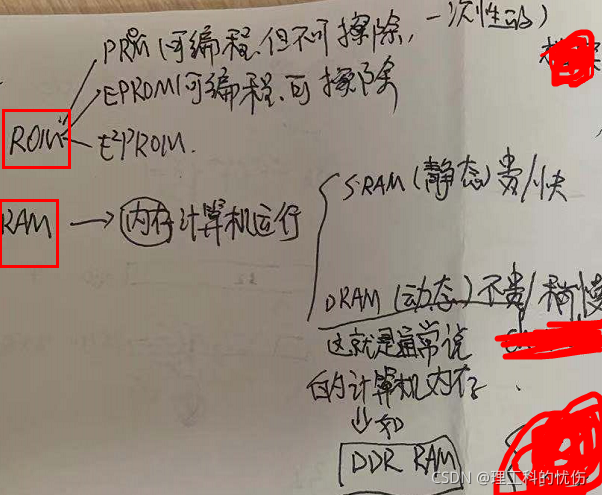 PROM(可编程、但不可擦除,一次性的)
EPROM(可编程、可擦除
ROM
E²PROM.
SRAM(静态)贵/快
RAM → 内存 计算机运行
DRAM(动态)不贵/稍慢
这就是通常说
的计算机内存.
↓如
DDR RAM
CSDN @理工科的忧伤